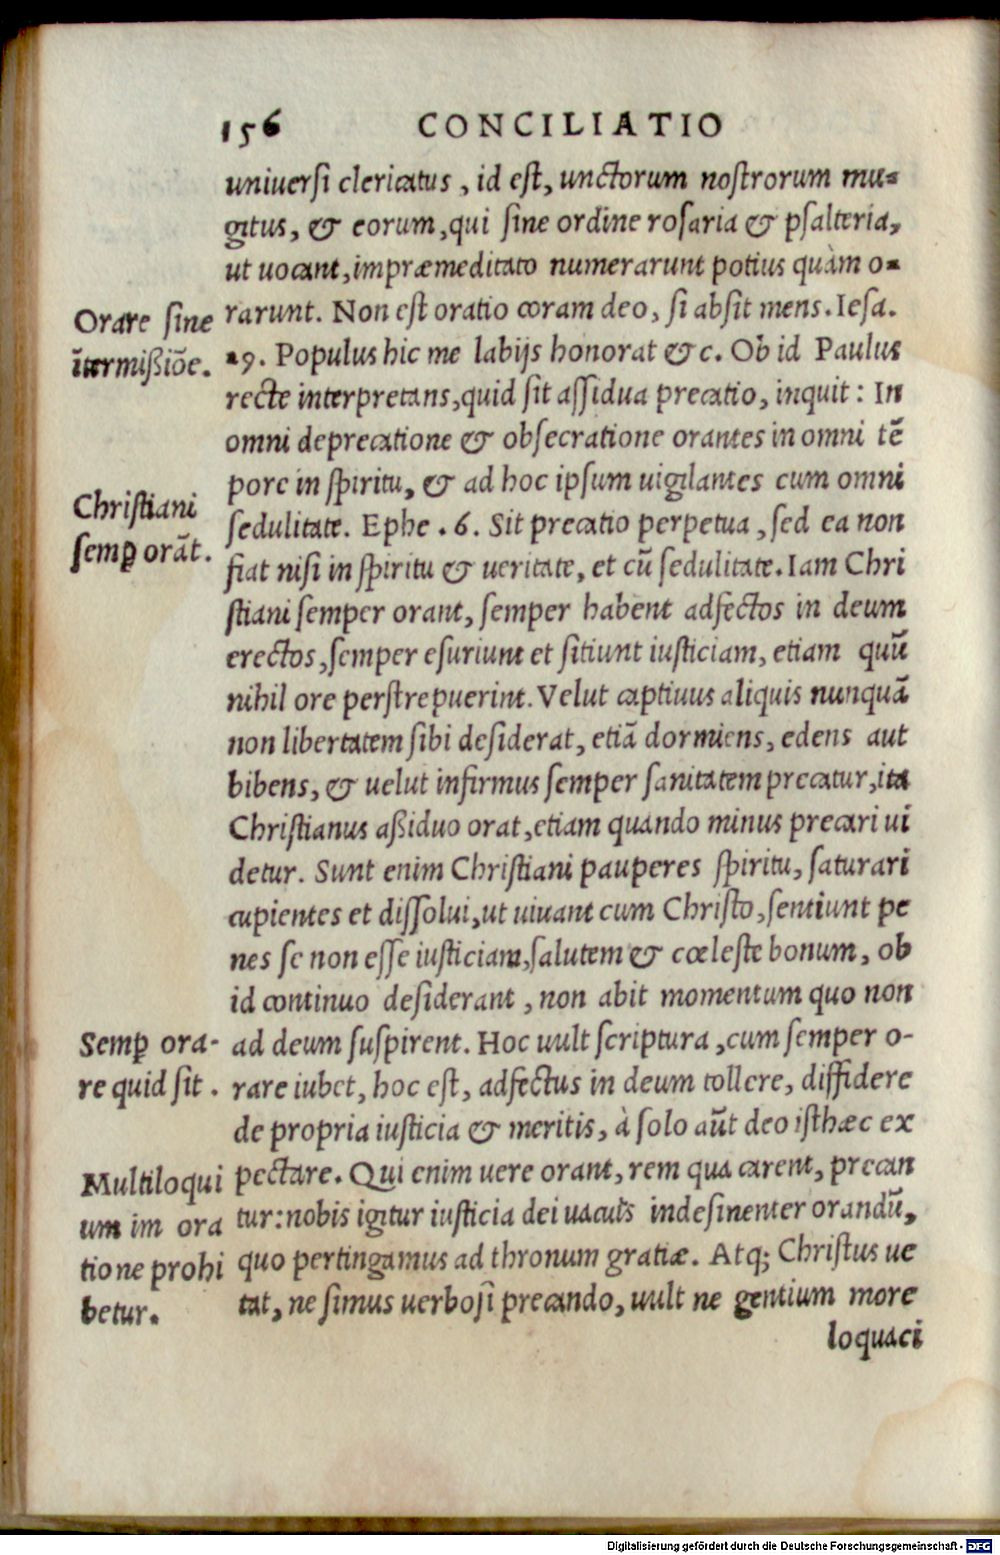 156 CONCILIATIO
uniuersi clericatus, id est, unctorum nostrorum mu-
gitus, & eorum, qui sine ordine rosaria & psalteria,
ut uocant, impræmeditato numerarunt potius quàm o-
rarunt. Non est oratio coram deo, si absit mens. Iesa.
29. Populus hic me labijs honorat &c. Ob id Paulus
recte interpretans, quid sit assidua precatio, inquit: In
omni deprecatione & obsecratione orantes in omni tē
pore in spiritu, & ad hoc ipsum uigilantes cum omni
sedulitate. Ephe. 6. Sit precatio perpetua, sed ea non
fiat nisi in spiritu & ueritate, et cū sedulitate. Iam Chri
stiani semper orant, semper habent adfectos in deum
erectos, semper esuriunt et sitiunt iusticiam, etiam quū
nihil ore perstrepuerint. Velut captiuus aliquis nunquā
non libertatem sibi desiderat, etiā dormiens, edens aut
bibens, & uelut infirmus semper sanitatem precatur, ita
Christianus aßiduo orat, etiam quando minus precari ui
detur. Sunt enim Christiani pauperes spiritu, saturari
cupientes et dissolui, ut uiuant cum Christo, sentiunt pe
nes se non esse iusticiam, salutem & cœleste bonum, ob
id continuo desiderant, non abit momentum quo non
ad deum suspirent. Hoc uult scriptura, cum semper o-
rare iubet, hoc est, adfectus in deum tollere, diffidere
de propria iusticia & meritis, à solo aūt deo isthæc ex
pectare. Qui enim uere orant, rem qua carent, precan
tur: nobis igitur iusticia dei uacuis indesinenter orandū,
quo pertingamus ad thronum gratiæ. Atq; Christus ue
tat, ne simus uerbosi precando, uult ne gentium more
loquaci
Orare sine
ītermißiōe.
Christiani
semꝑ orāt.
Semꝑ ora-
re quid sit.
Multiloqui
um im ora
tione prohi
betur.
Digitalisierung gefördert durch die Deutsche Forschungsgemeinschaft - DFG